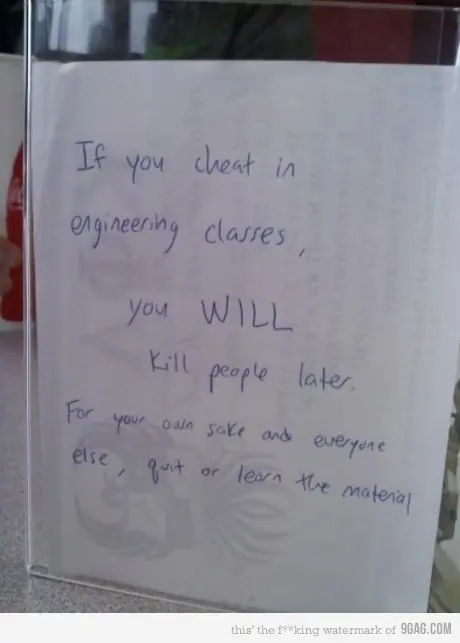 If you cheat in
engineering classes,
you WILL
kill people later.
For your own sake and everyone
else, quit or learn the material
this' the f**king watermark of 9GAG.COM